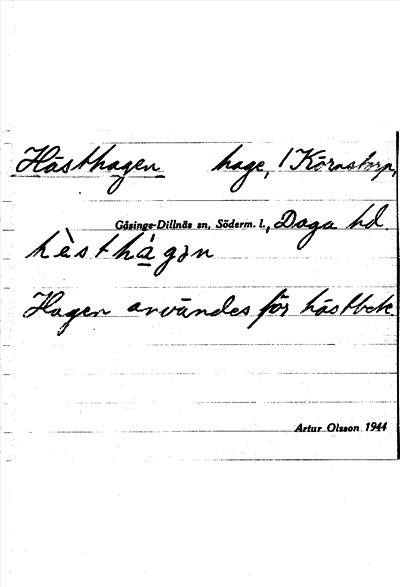 Hästhagen hage, 1 Kärnstorp,
Gåsinge-Dillnäs sn, Söderm. l., Daga hd
hèsthá̱gən
Hagen användes för hästbete.
Artur Olsson 1944